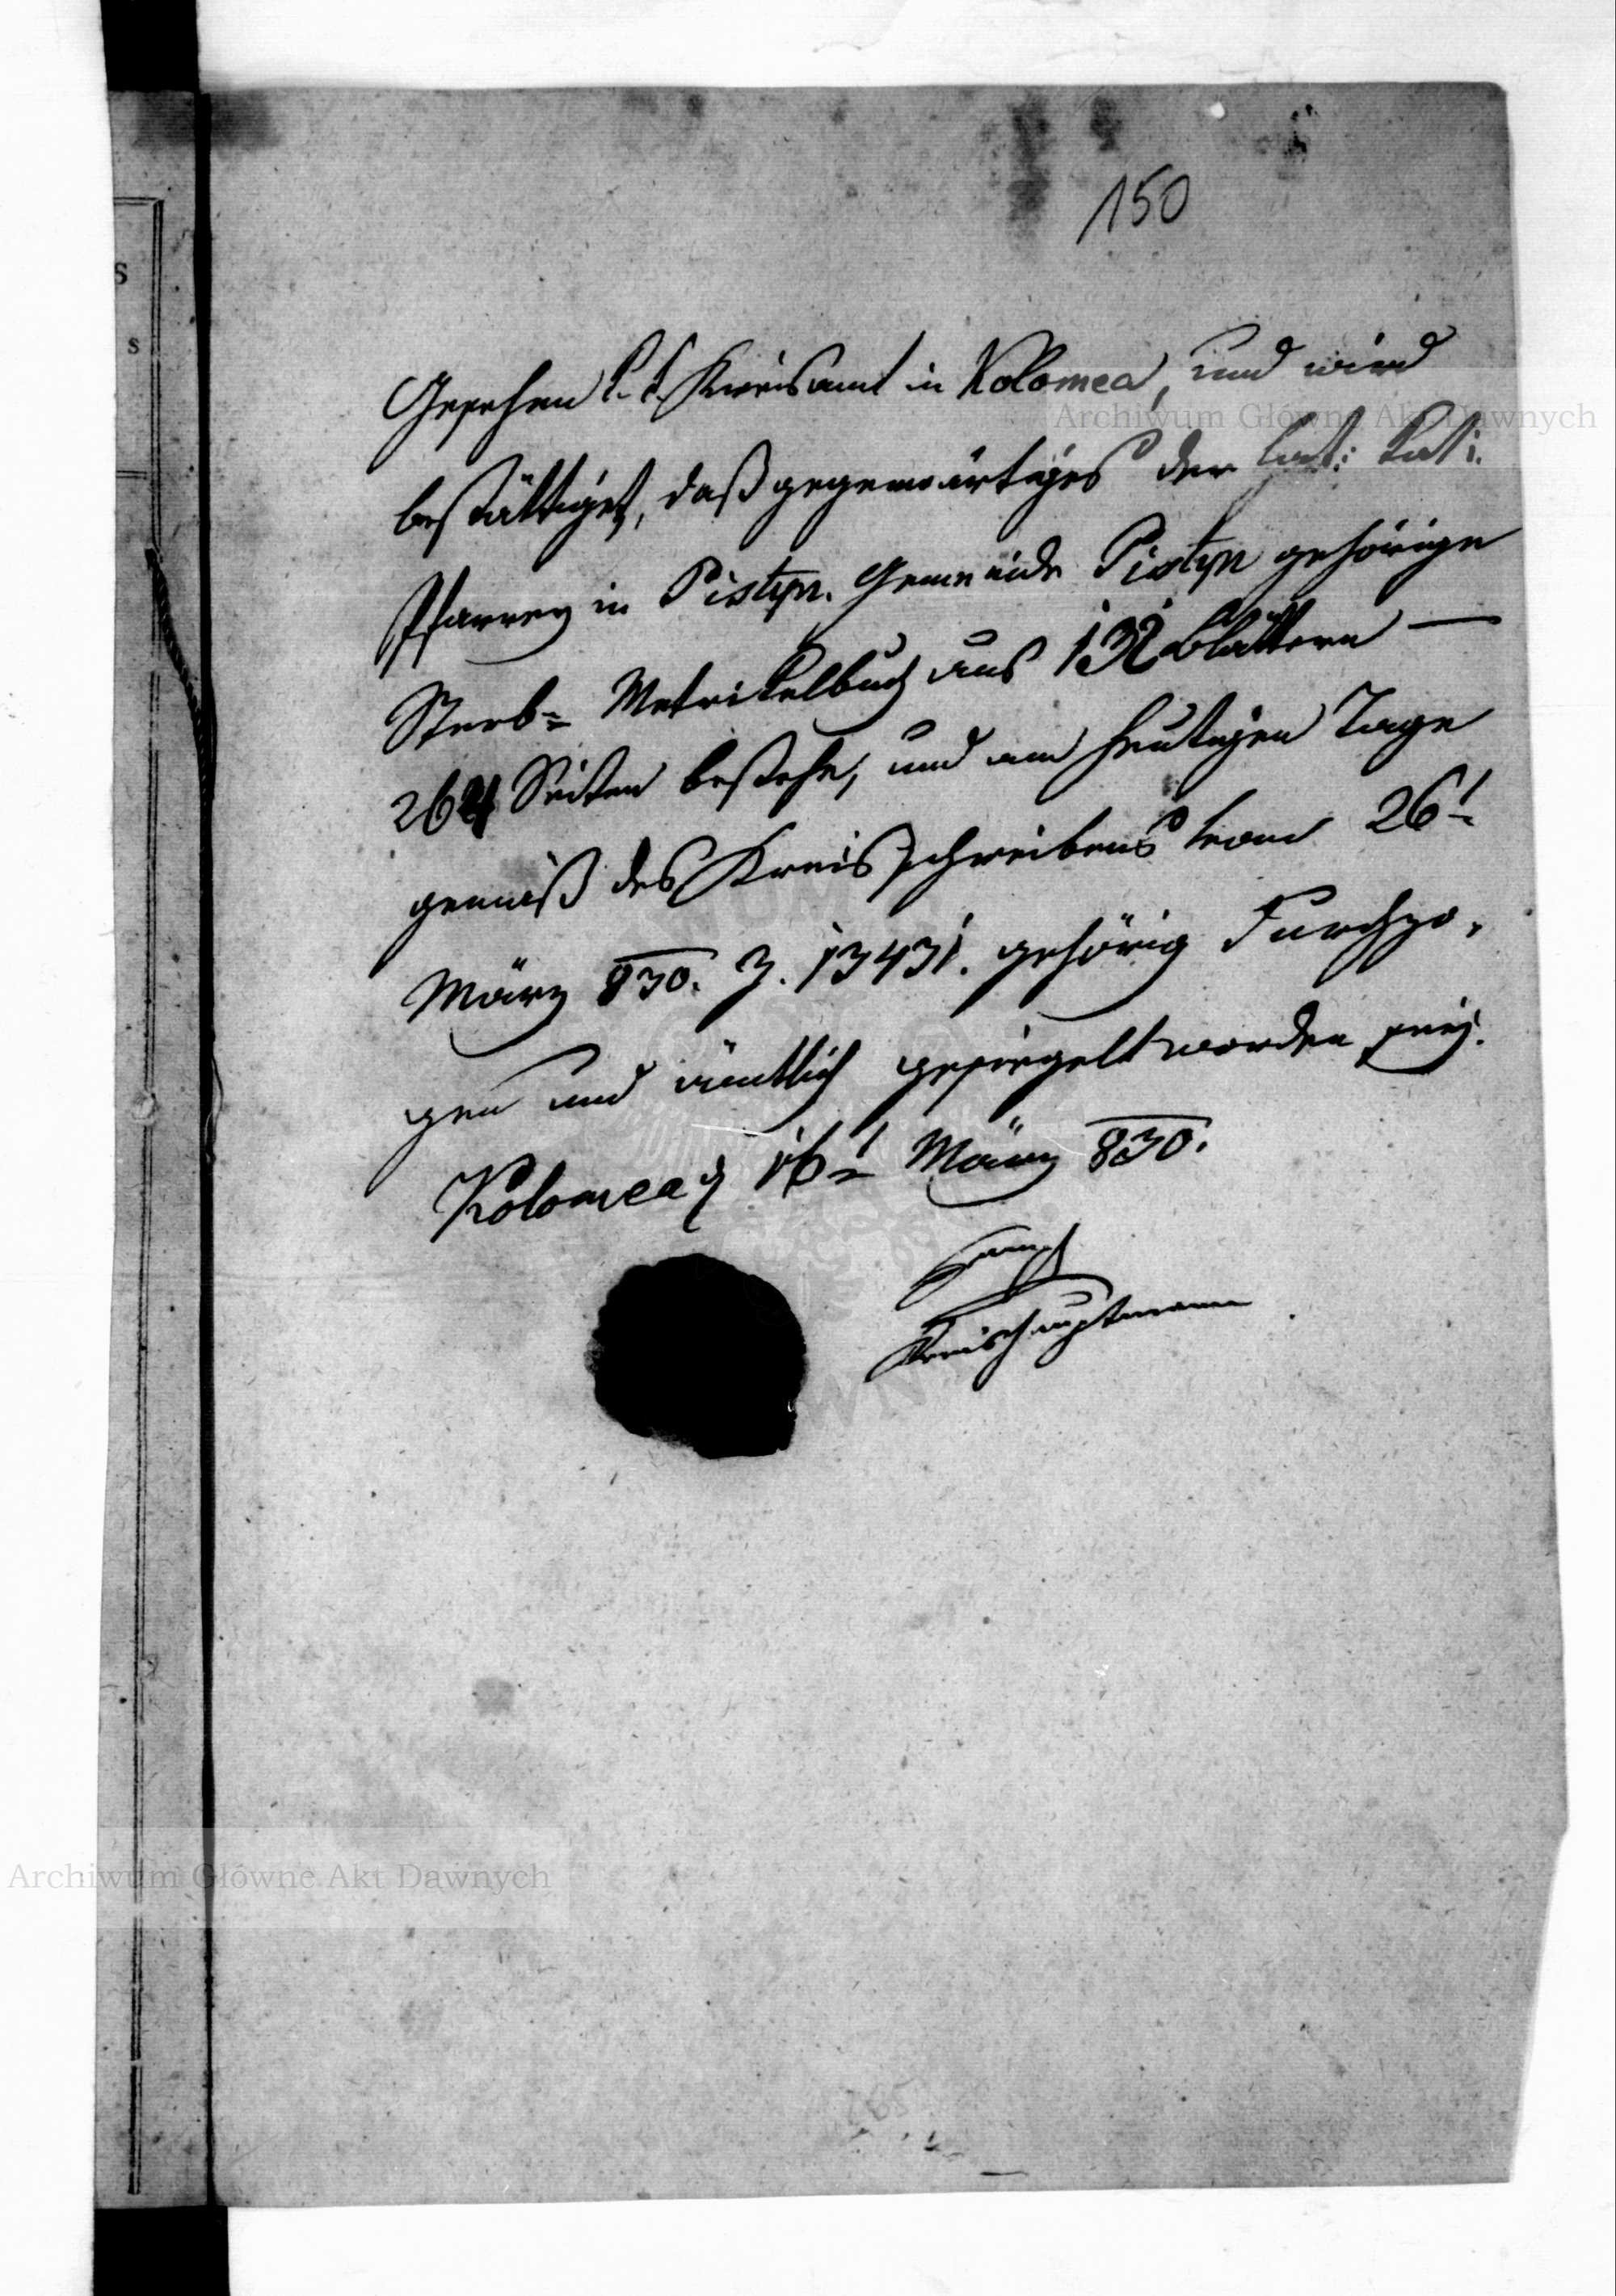 150
Gesehen k. k. Kreisamt in Kolomea, und wird
Archiwum Główne Akt Dawnych
bestättiget, daß gegenwärtiges der lat: kat:
Pfarrey in Pistyn. Gemeinde Pistyn gehörige
Sterb= Metrikelbuch aus 132 Blättern —
264 Seiten bestehe, und am heutigen Tage
gemäß des Kreisschreibens vom 26t
März 830. Z. 13431. gehörig durchzo-
gen und ämtlich gesiegelt worden sey.
Kolomea d 16t März 830.
Kreishauptmann
Archiwum Główne Akt Dawnych